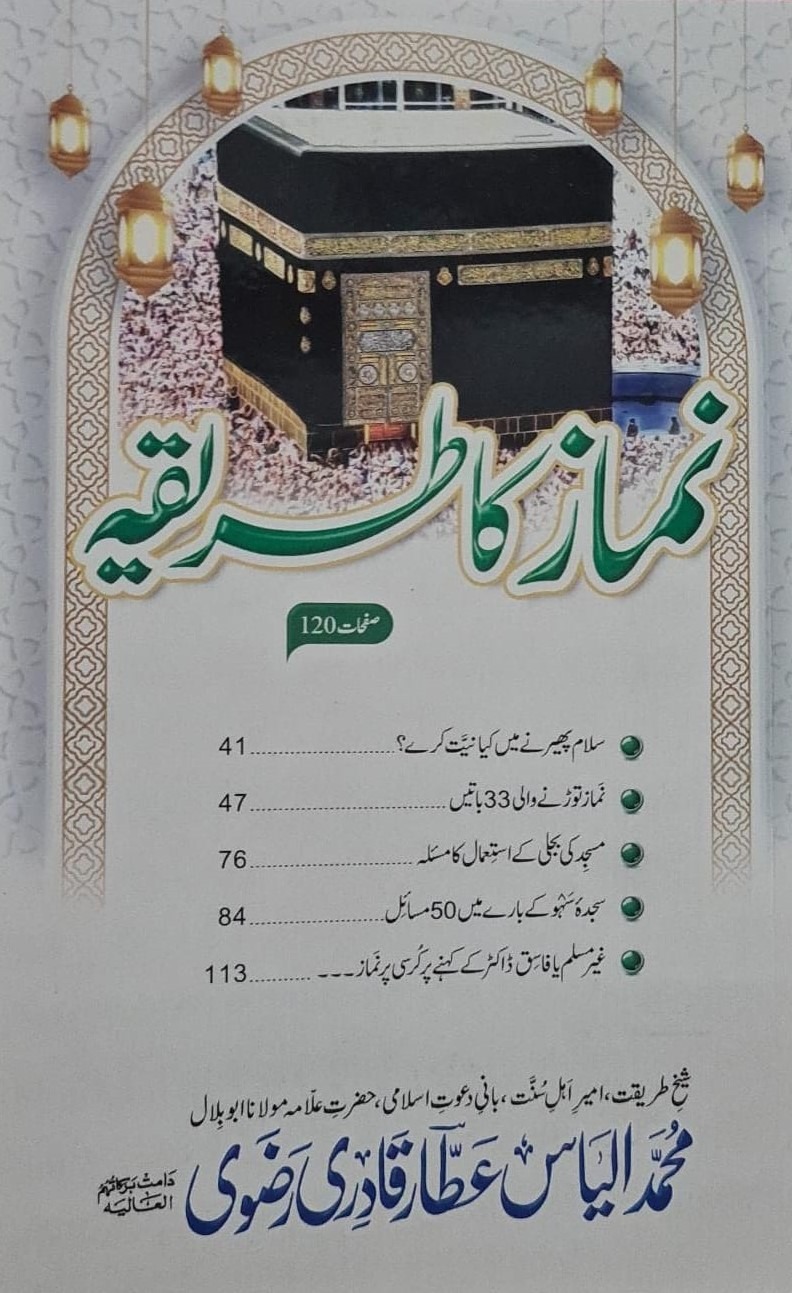 نماز کا طریقہ
صفحات 120
سلام پھیرنے میں کیا نیَّت کرے؟ 41
نَماز توڑنے والی 33 باتیں 47
مسجِد کی بجلی کے استِعمال کا مسئلہ 76
سجدۂ سَہْو کے بارے میں 50 مسائِل 84
غیر مسلم یا فاسِق ڈاکٹر کے کہنے پر کُرسی پر نَماز ۔۔۔ 113
شیخِ طریقت، امیرِ اَہلِ سُنَّت، بانیِ دعوتِ اسلامی، حضرتِ علّامہ مولانا ابو بِلال
مُحمَّد الیاس عَطّار قادِری رَضَوی
دَامَتْ بَرَکَاتُہُمُ
الْعَالِیَہ